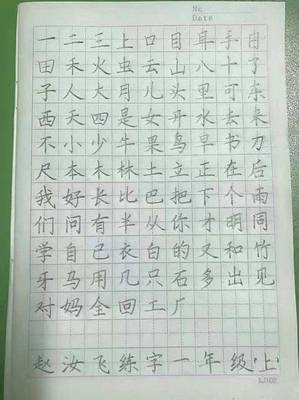 No.
Date
一二三上口目耳手日
田禾火虫云山八十了
子人大月儿头里可东
西天四是女开水去来
不小少牛果鸟早书刀
尺本木林土立正在后
我好长比巴把下个雨
们问有半从你才明同
学自己衣白的又和竹
牙马用几只石多出见
对妈全回工厂
赵汝飞练字一年级·上